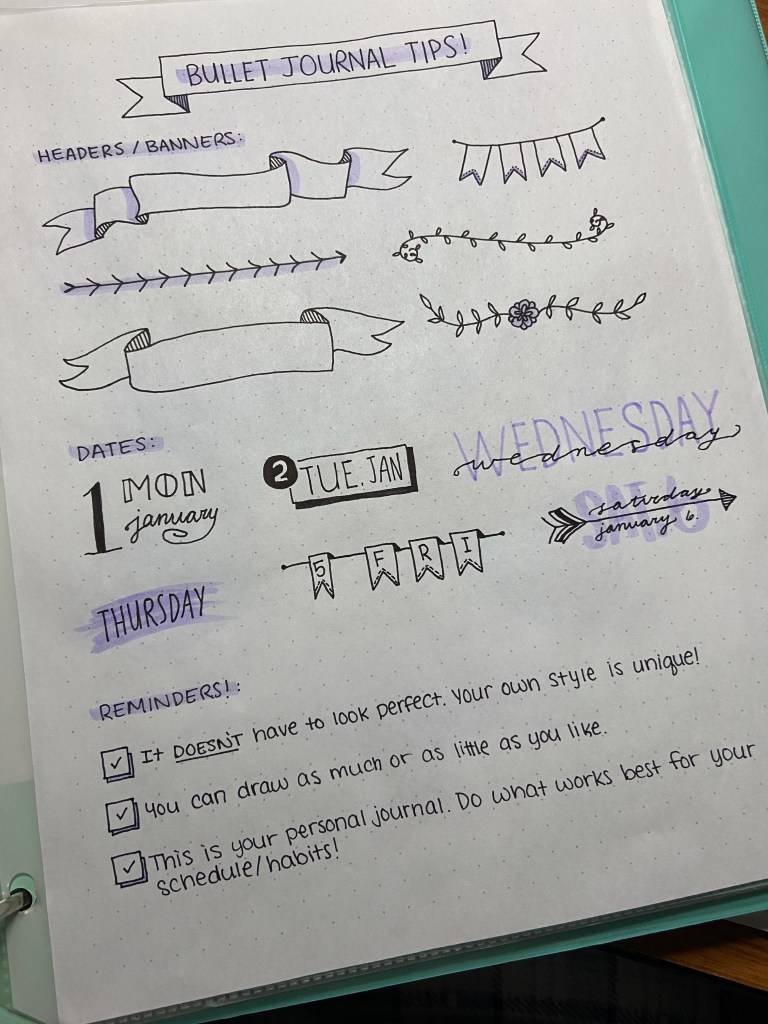 BULLET JOURNAL TIPS!
HEADERS / BANNERS:
DATES:
1 MON
january
2 TUE. JAN
WEDNESDAY
wednesday
SAT 6
saturday
january 6.
5 FRI
THURSDAY
REMINDERS!:
It DOESN'T have to look perfect. Your own style is unique!
You can draw as much or as little as you like.
This is your personal journal. Do what works best for your
schedule/habits!